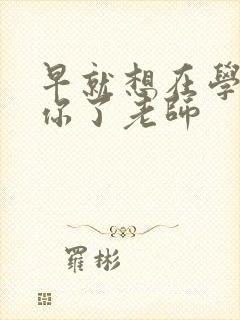 早就想在學
你了老師
羅彬